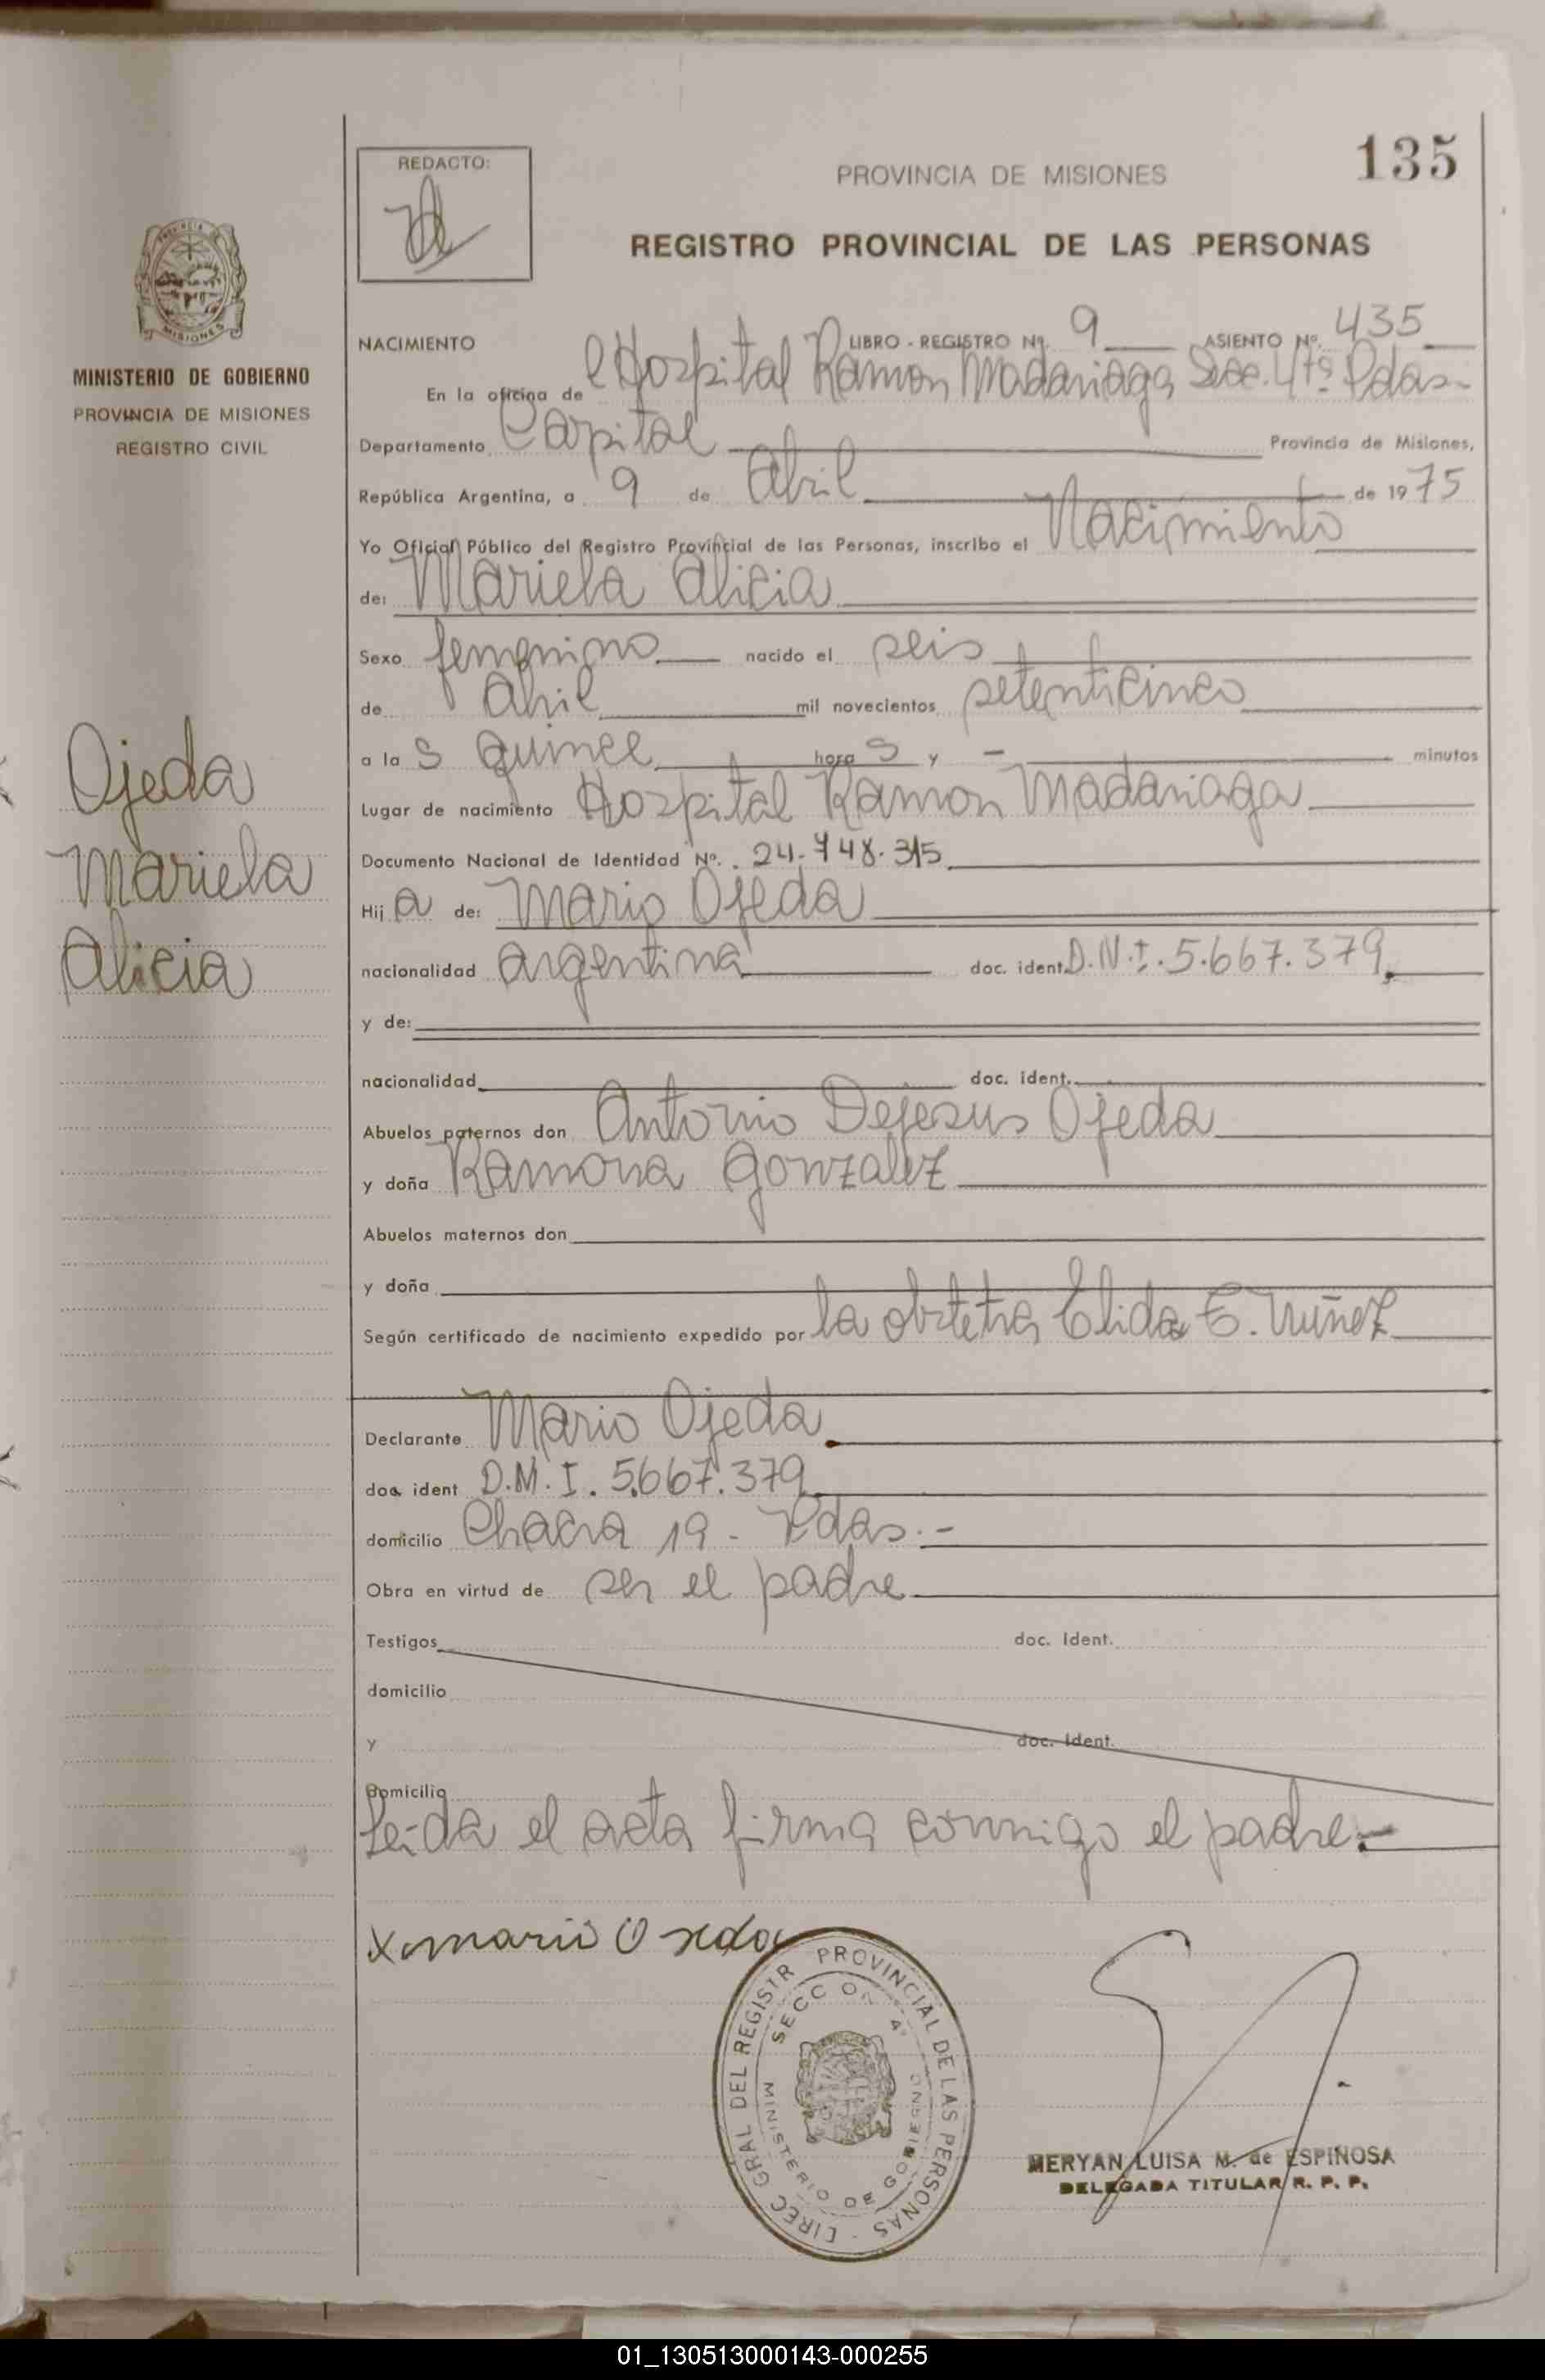 135
REDACTO:
PROVINCIA DE MISIONES
REGISTRO PROVINCIAL DE LAS PERSONAS
MINISTERIO DE GOBIERNO
PROVINCIA DE MISIONES
REGISTRO CIVIL
Ojeda
Mariela
Alicia
NACIMIENTO LIBRO - REGISTRO Nº. 9 ASIENTO Nº. 435
En la oficina de Hospital Ramon Madariaga Secc. 4ta Pdas-
Departamento Capital Provincia de Misiones,
República Argentina, a 9 de Abril de 1975
Yo Oficial Público del Registro Provincial de las Personas, inscribo el Nacimiento
de: Mariela Alicia
Sexo femenino nacido el seis
de Abril mil novecientos setenticinco
a la s quince hora s y - minutos
Lugar de nacimiento Hospital Ramon Madariaga
Documento Nacional de Identidad Nº. 24.748.315
Hij a de: Mario Ojeda
nacionalidad argentina doc. ident. D.N.I. 5.667.379
y de:
nacionalidad doc. ident.
Abuelos paternos don Antonio Dejesus Ojeda
y doña Ramona Gonzalez
Abuelos maternos don
y doña
Según certificado de nacimiento expedido por la obstetra Elida E. Nuñez
Declarante Mario Ojeda
doc. ident D.M.I. 5.667.379
domicilio Chacra 19 - Pdas.-
Obra en virtud de ser el padre
Testigos doc. ident.
domicilio
y doc. ident.
domicilio
Leida el acta firma conmigo el padre.-
x mario Ojeda
DIREC GRAL DEL REGISTR PROVINCIAL DE LAS PERSONAS -
SECC ON 4ª
MINISTERIO DE GOBIERNO
MERYAN LUISA M. de ESPINOSA
DELEGADA TITULAR R. P. P.
01_130513000143-000255